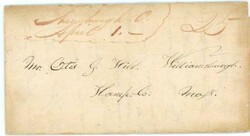 O.
April 1.
25
Mr. Otis G. Hill Williamsburgh
Hamp. Co. Mass.